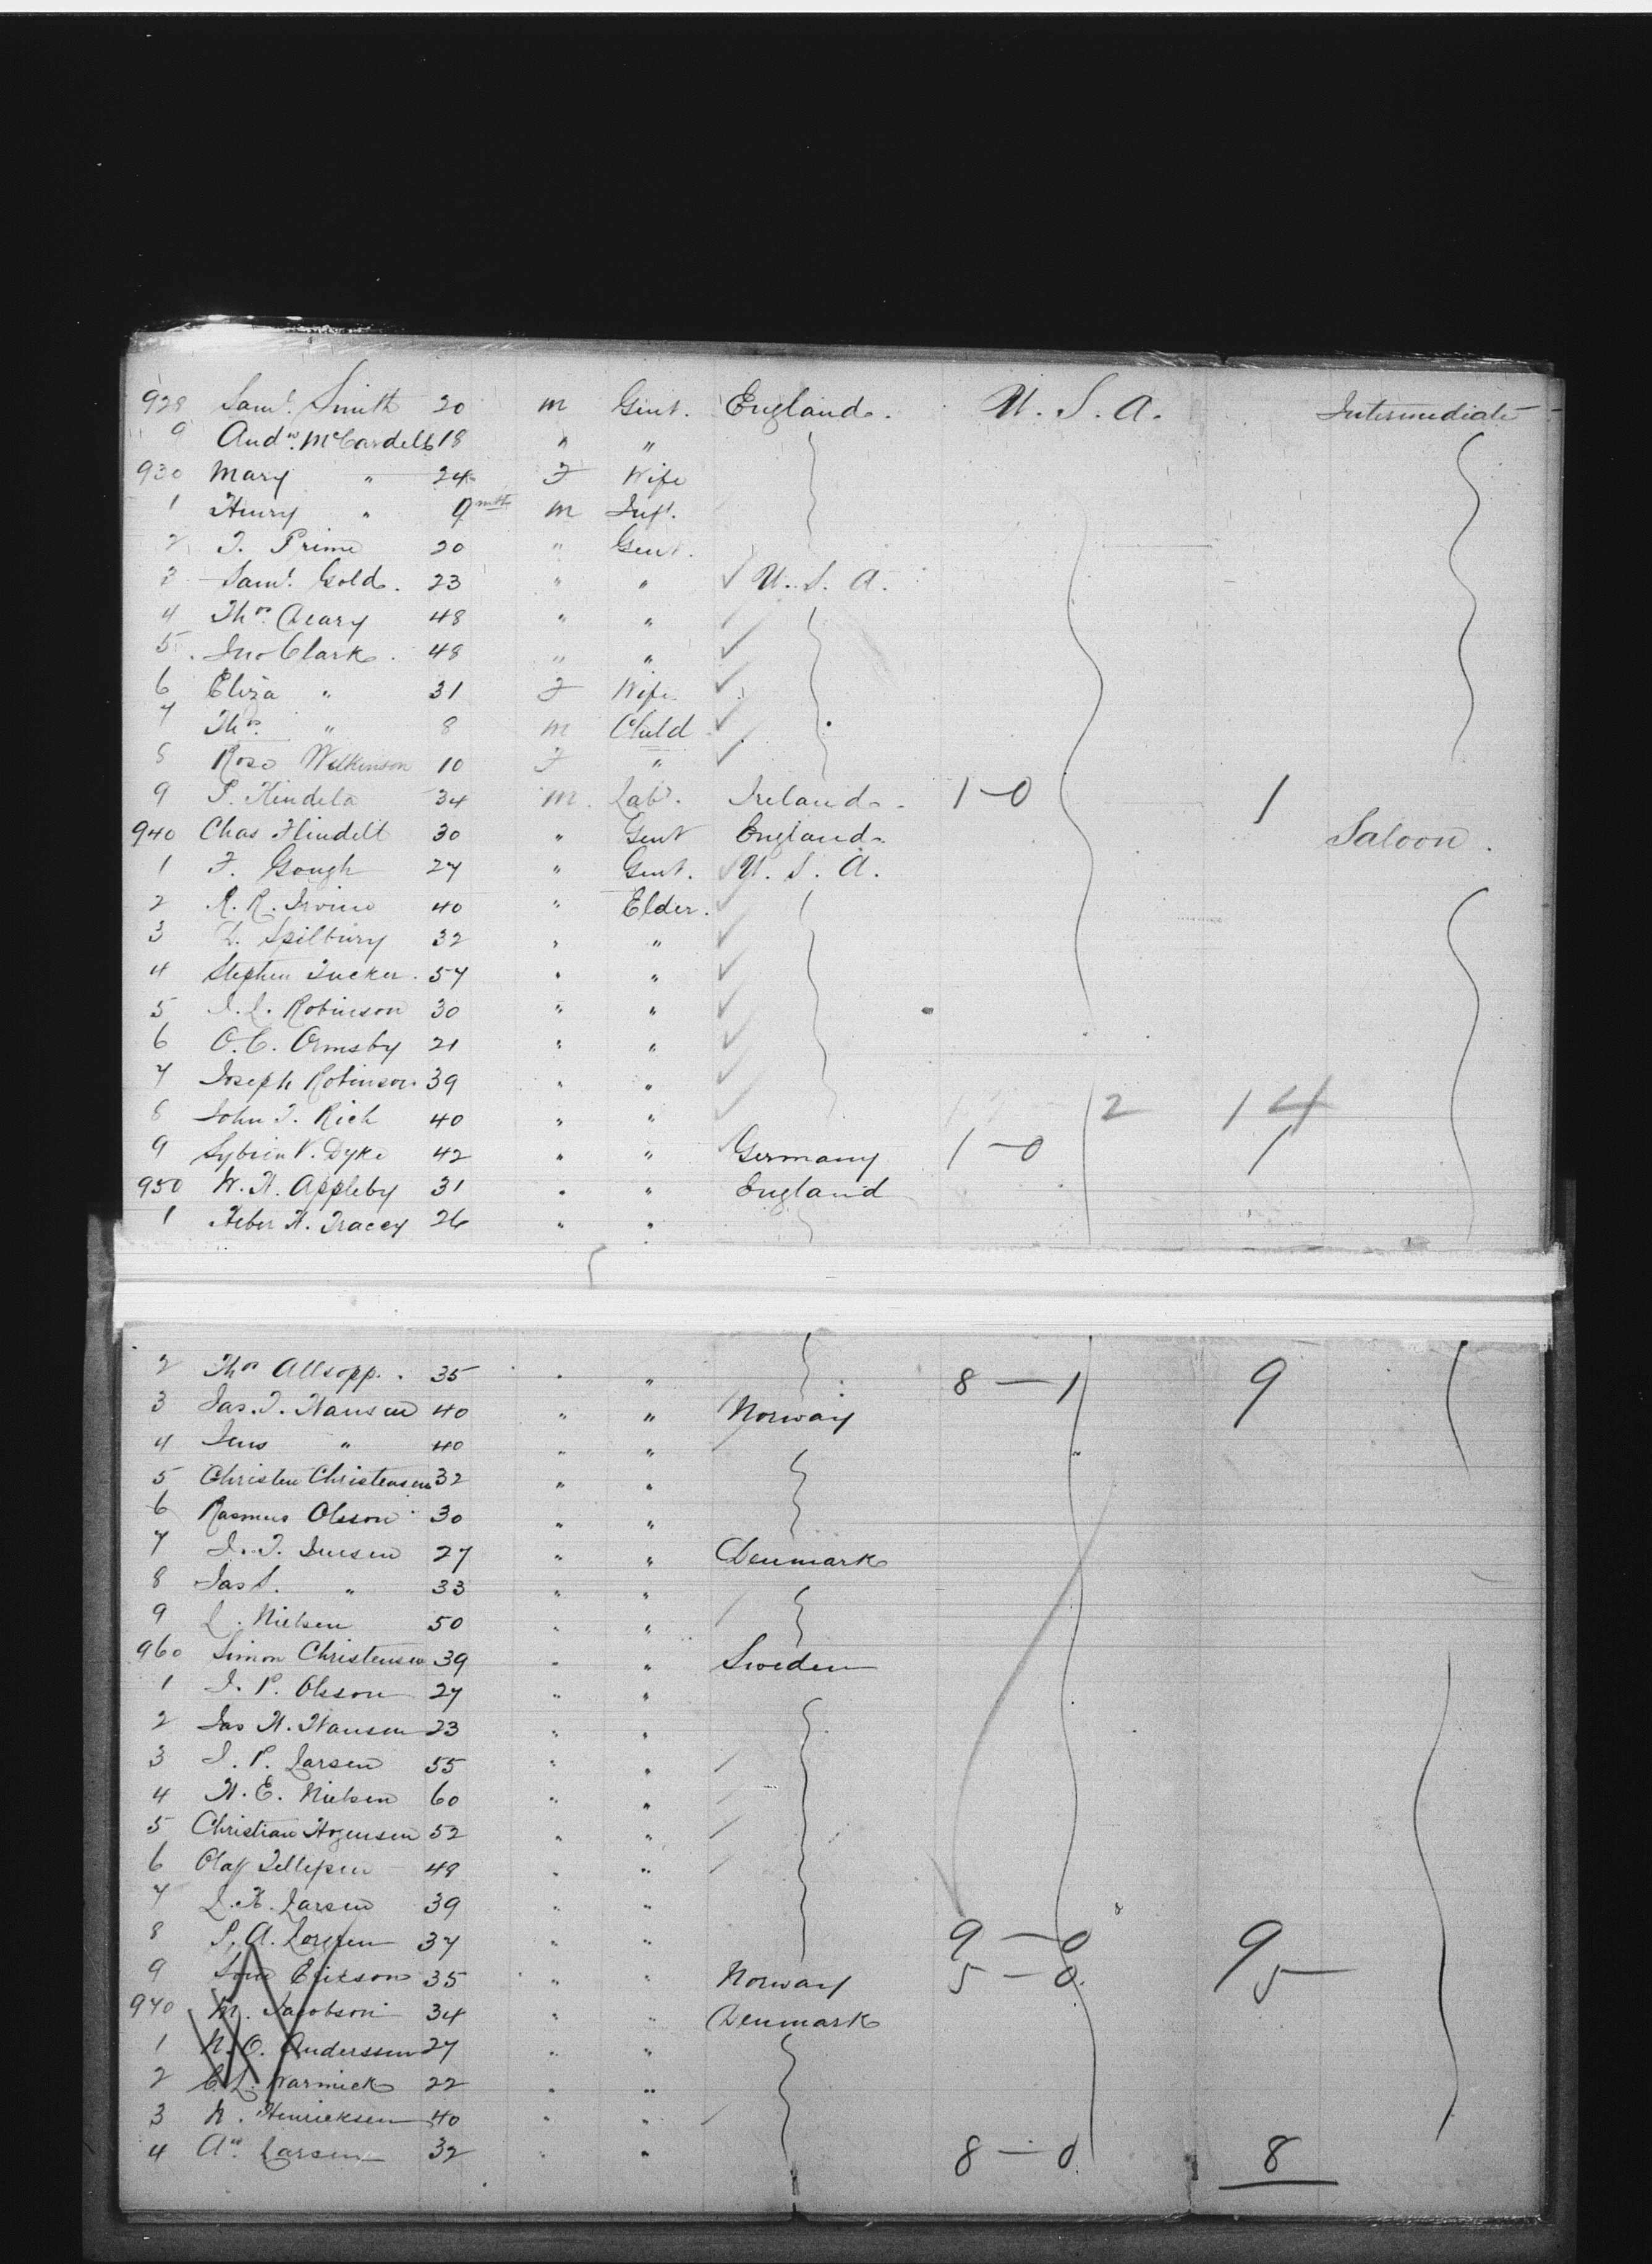 928 Saml. Smith 20 m Gent. England. U. S. A. Intermediate
9 Andw. McCardell 18 " "
930 Mary " 24 F Wife
1 Henry " 9 mth m Inft.
2 T. Prime 20 " Gent.
3 Saml. Gold. 23 " " ✓ U. S. A.
4 Thos. Cleary 48 " " ✓
5 Jno Clark. 48 " " ✓
6 Eliza " 31 F Wife ✓
7 Thos. " 8 m Child ✓
8 Rose Wilkinson 10 F " ✓
9 P. Kindela 34 m. Labr. Ireland. 1-0 1
940 Chas Flindell 30 " Gent England. Saloon.
1 F. Gough 27 " Gent. ✓ U. S. A.
2 R. R. Irvine 40 " Elder. ✓
3 Spilbury 32 " " ✓
4 Stephen Tucker. 57 " " ✓
5 J. L. Robinson 30 " " ✓
6 O. C. Ormsby 21 " " ✓
7 Joseph Robinson. 39 " " ✓
8 John T. Rich 40 " " ✓ 12 2 14
9 Sybrin V. Dyke 42 " " Germany 1-0 1
950 W. H. Appleby 31 " " England
1 Heber H. Tracey 26 " "
2 Thos Allsopp. 35 " " 8-1 9
3 Jas. T. Hansen 40 " " Norway
4 Jens " 40 " "
5 Christen Christensen 32 " "
6 Rasmus Olsson 30 " "
7 J. T. Jensen 27 " " Denmark
8 Jas S. " 33 " "
9 L. Nielsen 50 " "
960 Simon Christensen 39 " " Sweden
1 J. P. Olsson 27 " "
2 Jas H. Hansen 23 " "
3 J. P. Larsen 55 " "
4 H. E. Nielsen 60 " "
5 Christian 52 " "
6 Olaf 49 " "
7 L. K. Larsen 39 " "
8 P. A. 37 " " 9-0 9
9 Erikson 35 " " Norway 5-0 5
970 M. Jacobson 34 " " Denmark
1 N. O. Anderssen 27 " "
2 C. L. Warnick 22 " "
3 N. Henricksen 40 " "
4 Aw. Larsen 32 " " 8-0 8